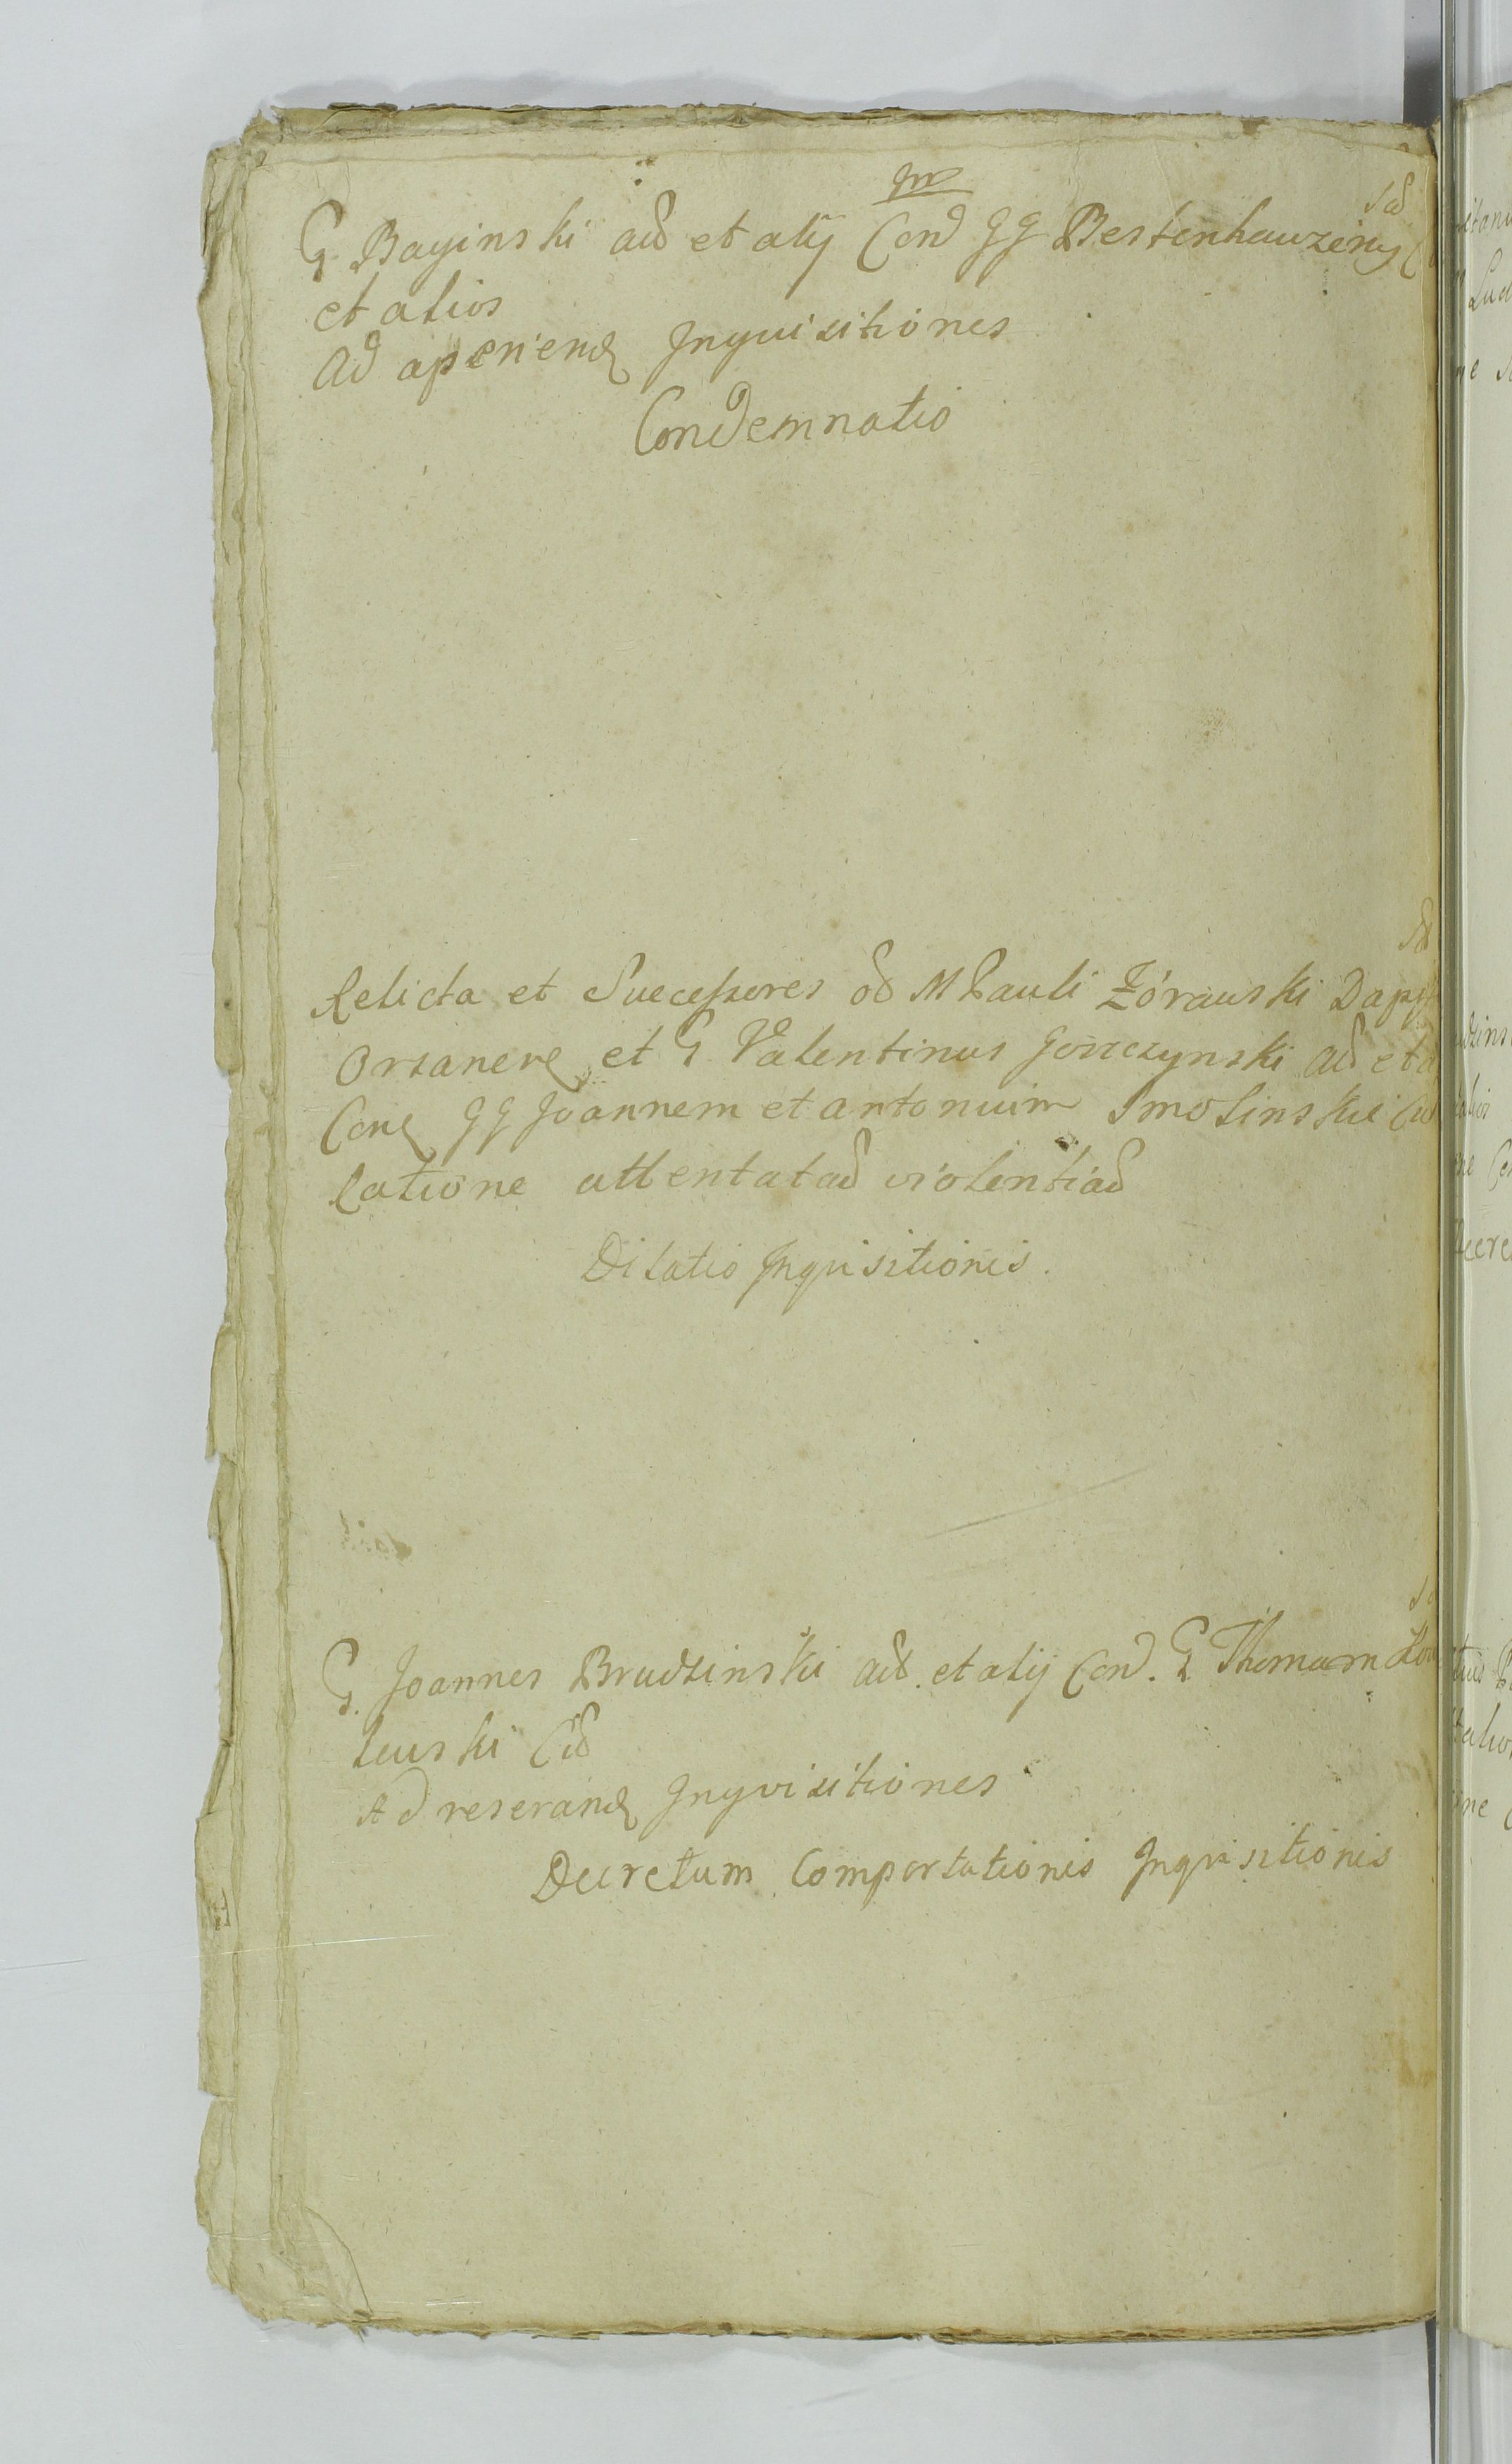 G Bayinski ađ et alij Con GG Bestenhauzeny
et alios
Ad aperiend Inquisitiones
Condemnatio
Relicta et Successores od M Pauli Żórawski Dapif
Orsanere et G Valentinus Gorczynski ad et a
Con GG Joannem et antonium Smolinskie Cid
Ratione attentatad violentiad
Dilatio Inquisitionis.
G. Joannes Brudzinski ad. et alij Con. G Thomam
lewski Cid
Ad reserand Inqvisitiones
Decretum Comportationis Inquisitionis